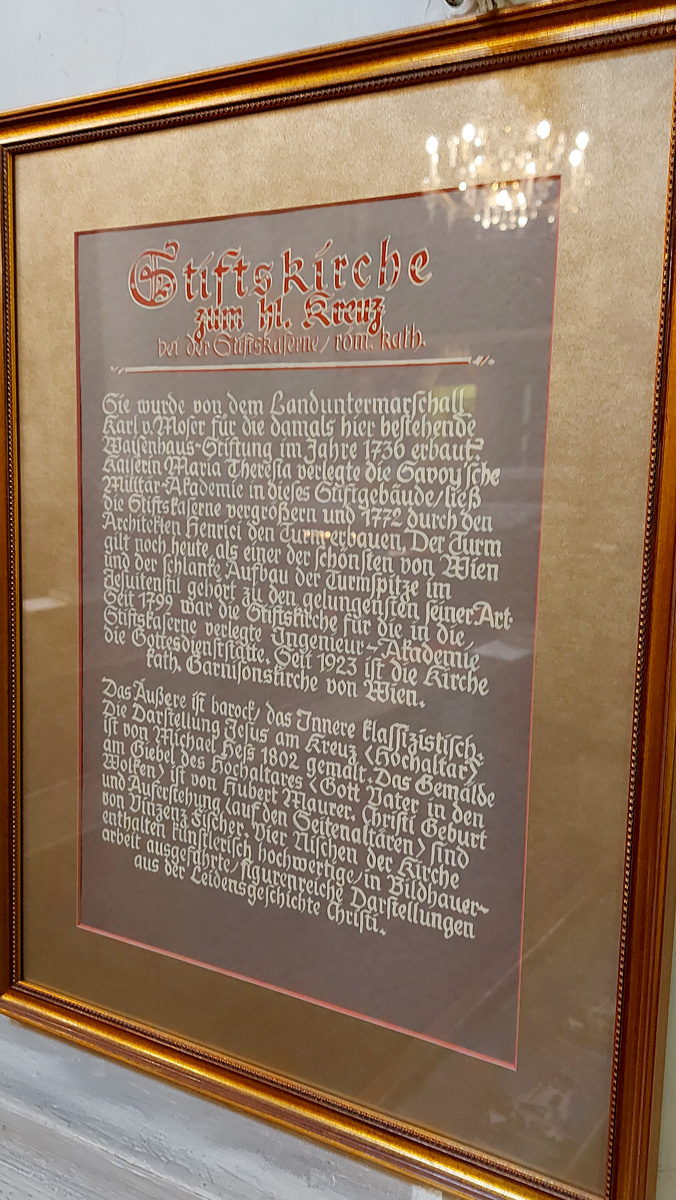 Stiftskirche
zum hl. Kreuz
bei der Stiftskaserne, röm. kath.
Sie wurde von dem Landuntermarschall
Karl v. Moser für die damals hier bestehende
Waisenhaus-Stiftung im Jahre 1736 erbaut.
Kaiserin Maria Theresia verlegte die Savoy'sche
Militär-Akademie in dieses Stiftgebäude, ließ
die Stiftskaserne vergrößern und 1772 durch den
Architekten Henrici den Turm erbauen. Der Turm
gilt noch heute als einer der schönsten von Wien
und der schlanke Aufbau der Turmspitze im
Jesuitenstil gehört zu den gelungensten seiner Art.
Seit 1799 war die Stiftskirche für die in die
Stiftskaserne verlegte Ingenieur-Akademie
die Gottesdienststätte. Seit 1923 ist die Kirche
kath. Garnisonskirche von Wien.
Das Äußere ist barock, das Innere klassizistisch.
Die Darstellung Jesus am Kreuz <Hochaltar>
ist von Michael Heß 1802 gemalt. Das Gemälde
am Giebel des Hochaltares <Gott Vater in den
Wolken> ist von Hubert Maurer. Christi Geburt
und Auferstehung <auf den Seitenaltären> sind
von Vinzenz Fischer. Vier Nischen der Kirche
enthalten künstlerisch hochwertige, in Bildhauer-
arbeit ausgeführte, figurenreiche Darstellungen
aus der Leidensgeschichte Christi.